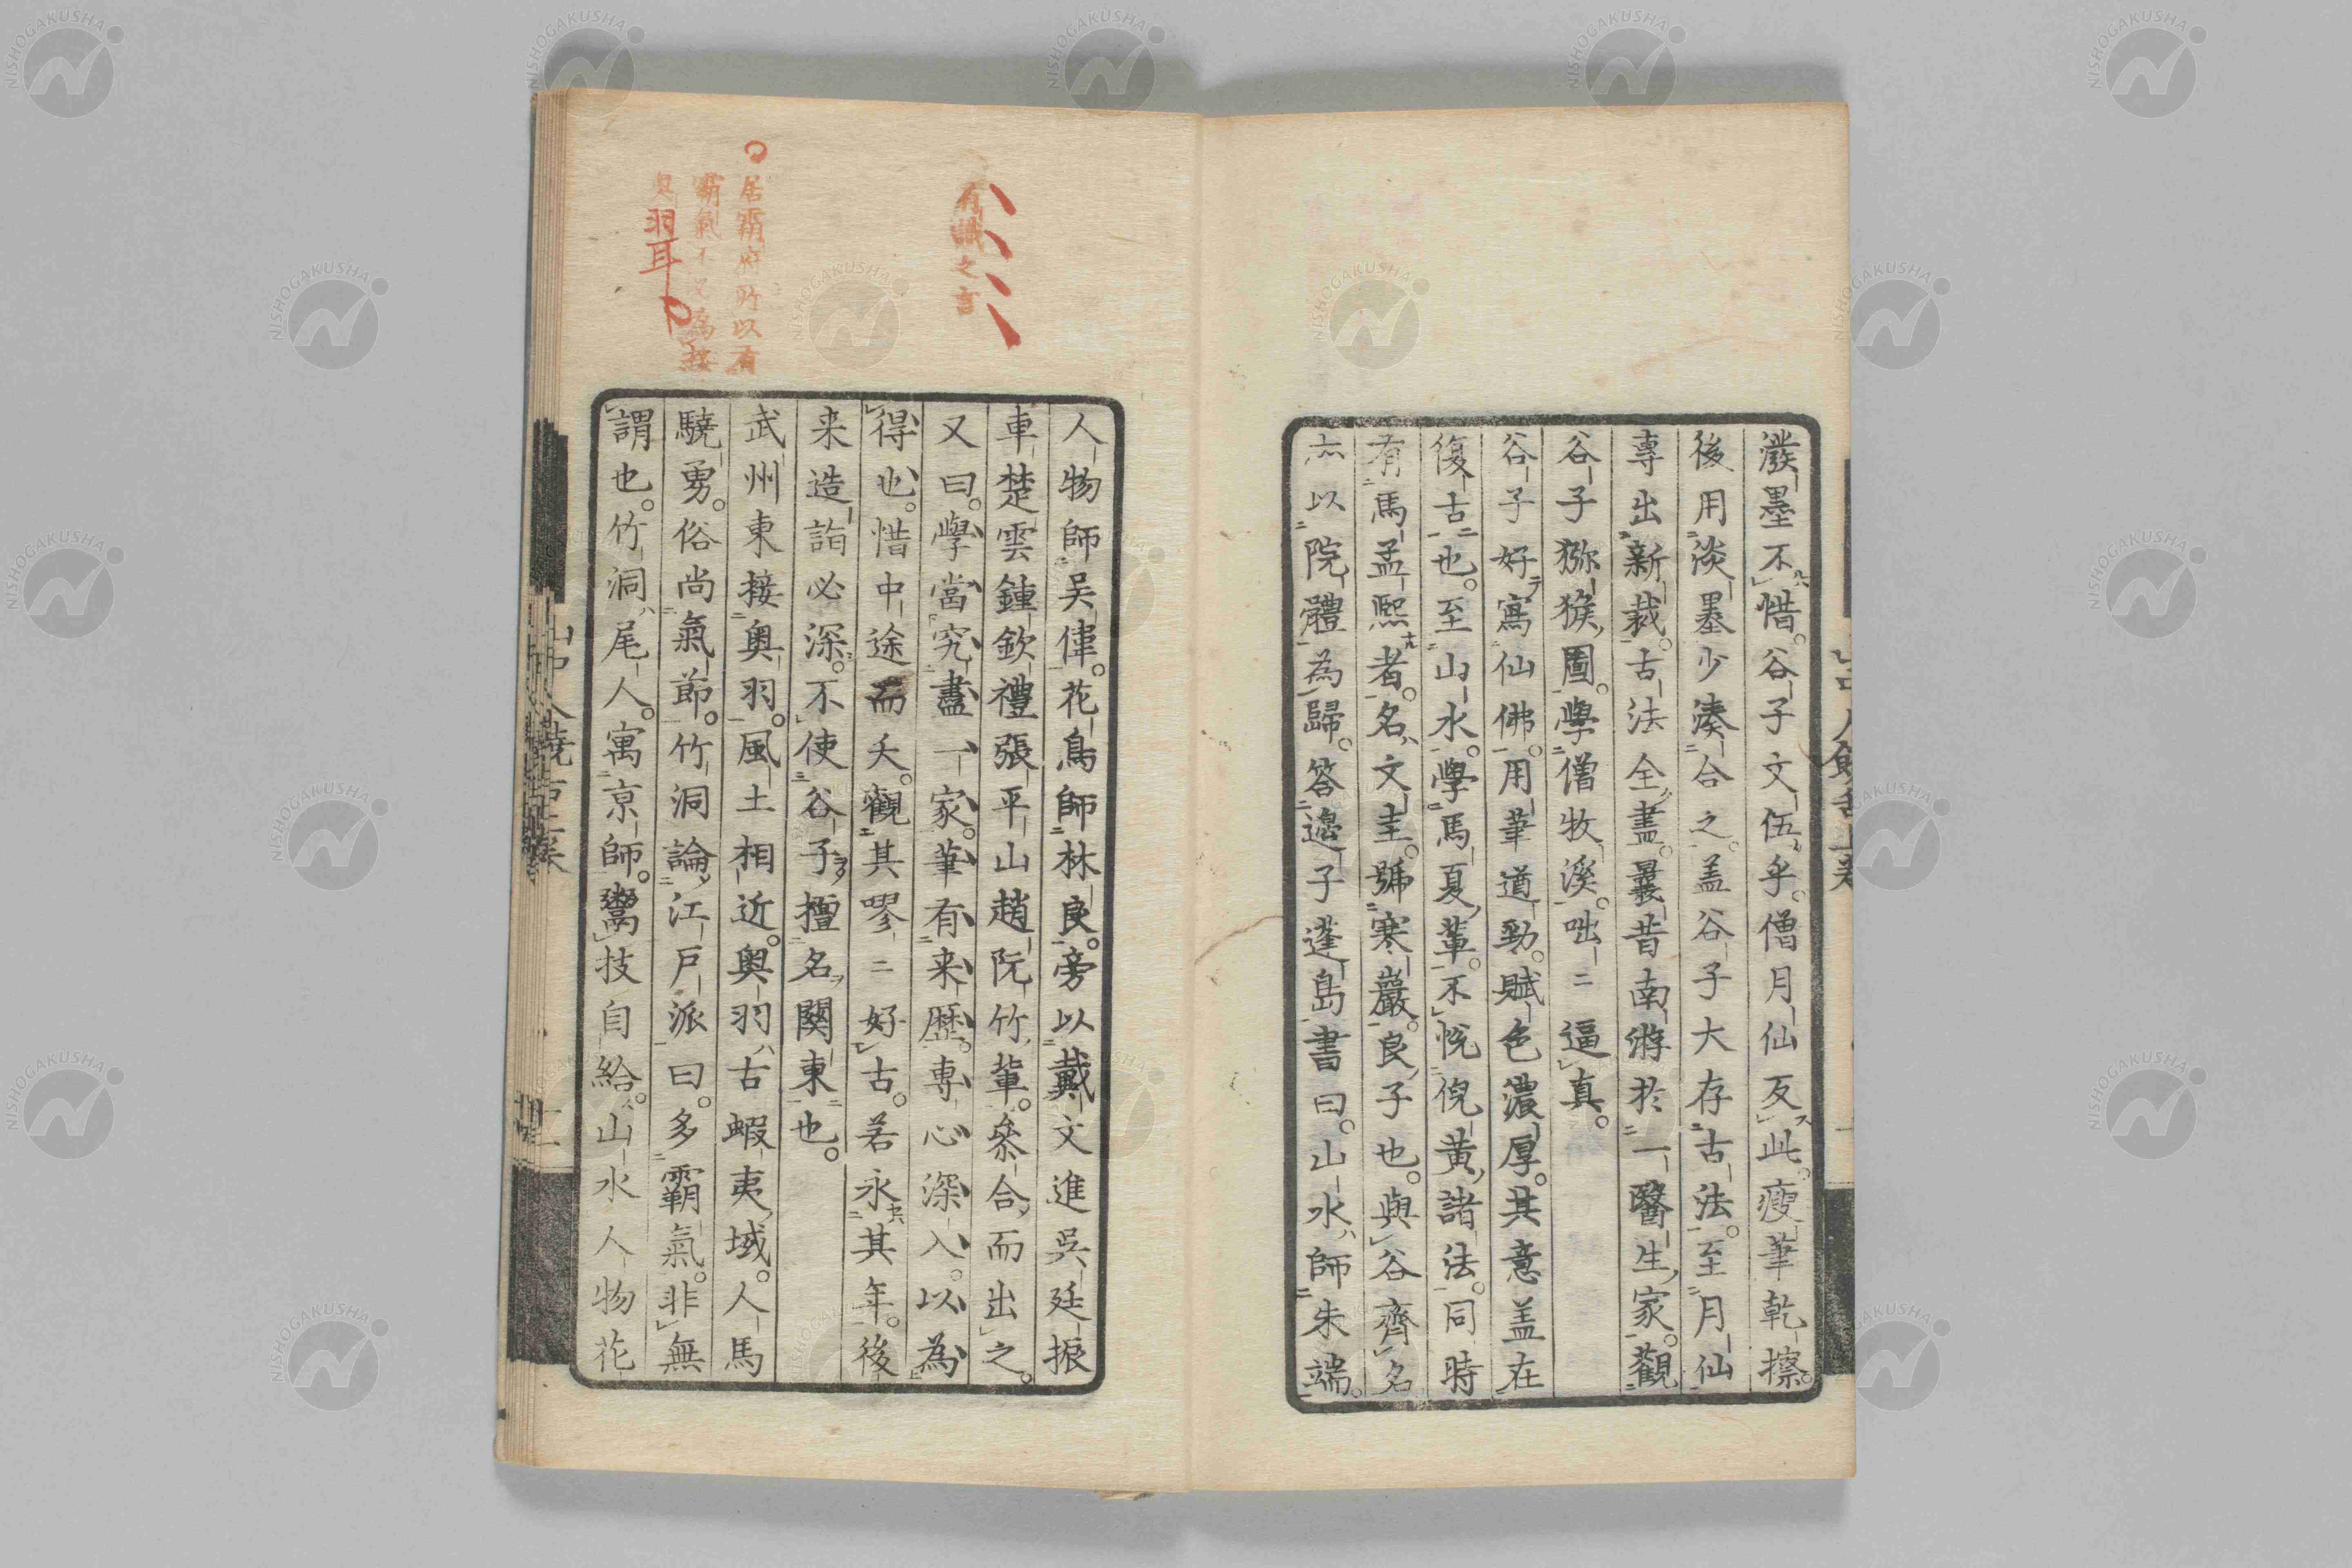 潑墨不惜。谷子文伍乎。僧月仙反此。瘦筆乾擦。
後用淡墨少湊合之。盖谷子大存古法。至月仙
專出新裁。古法全盡。曩昔南游於一醫生家。觀
谷子猕猴圖。學僧牧溪。咄二逼真。
谷子好寫仙佛。用筆遒勁。賦色濃厚。其意盖在
復古也。至山水。學馬夏輩。不悅倪黃諸法。同時
有馬孟熙者。名文圭。號寒巖。良子也。與谷齊名
亦以院體為歸。答邊子蓬島書曰。山水師朱端。
人物師吴偉。花鳥師林良。旁以戴文進吳廷振
車楚雲鍾欽禮張平山趙阮竹輩。叅合而出之。
又曰。學當究盡一家。筆有来歷。專心深入。以為
得也。惜中途而夭。觀其嘐二好古。若永其年。後
来造詣必深。不使谷子擅名關東也。
武州東接奥羽。風土相近。奥羽古蝦夷域。人馬
驍勇。俗尚氣節。竹洞論江戸派曰。多霸氣。非無
謂也。竹洞尾人。寓京師。鬻技自給。山水人物花
有識之言
居霸府所以有
霸氣不必為接
奥羽耳
NISHOGAKUSHA